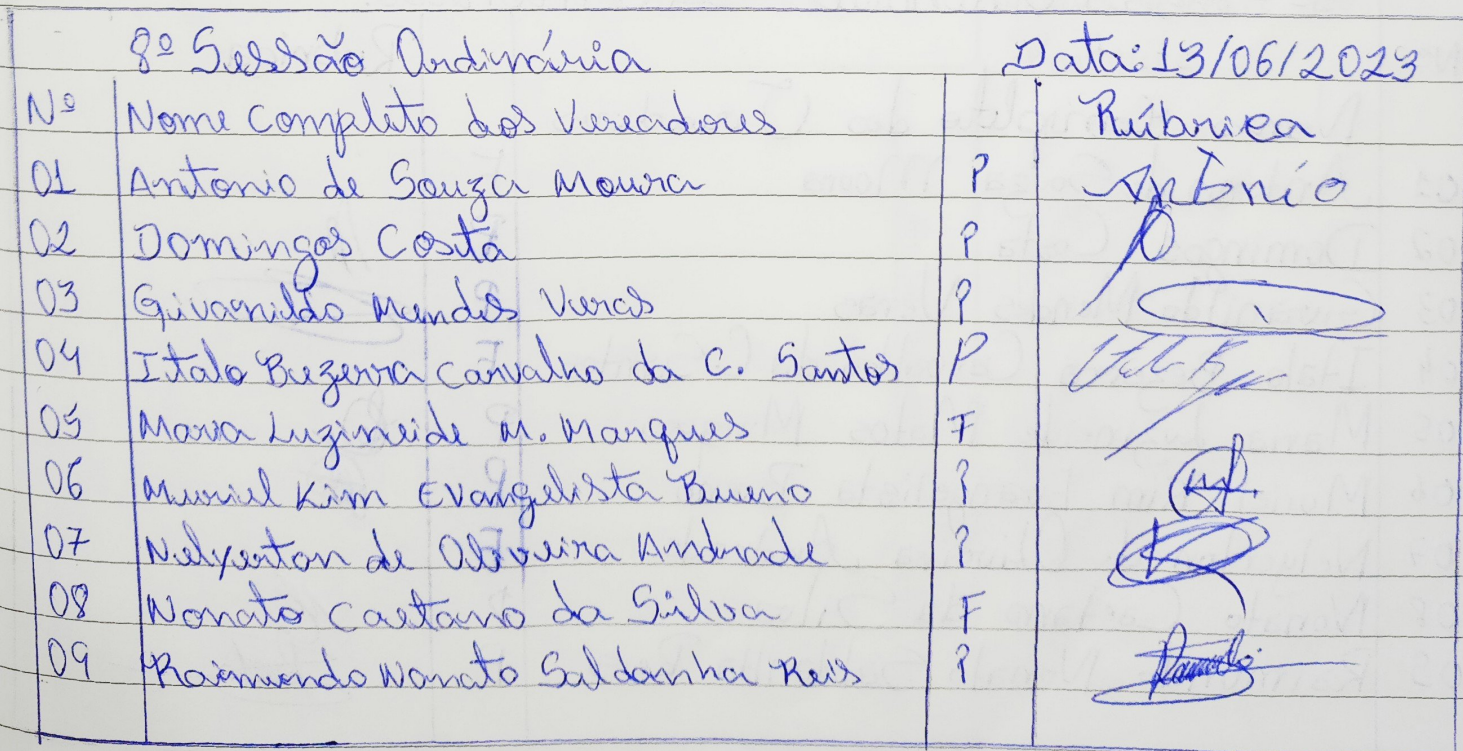 8º Sessão Ordinária Data: 13/06/2023
Nº Nome Completo dos Vereadores Rúbrica
01 Antonio de Souza Moura P Antônio
02 Domingos Costa P
03 Givanildo Mendes Veras P
04 Italo Bezerra Carvalho da C. Santos P
05 Maria Luzineide M. Marques F
06 Muriel Kim Evangelista Bueno P
07 Nelyerton de Oliveira Andrade P
08 Nonato Caetano da Silva F
09 Raimundo Nonato Saldanha Reis P